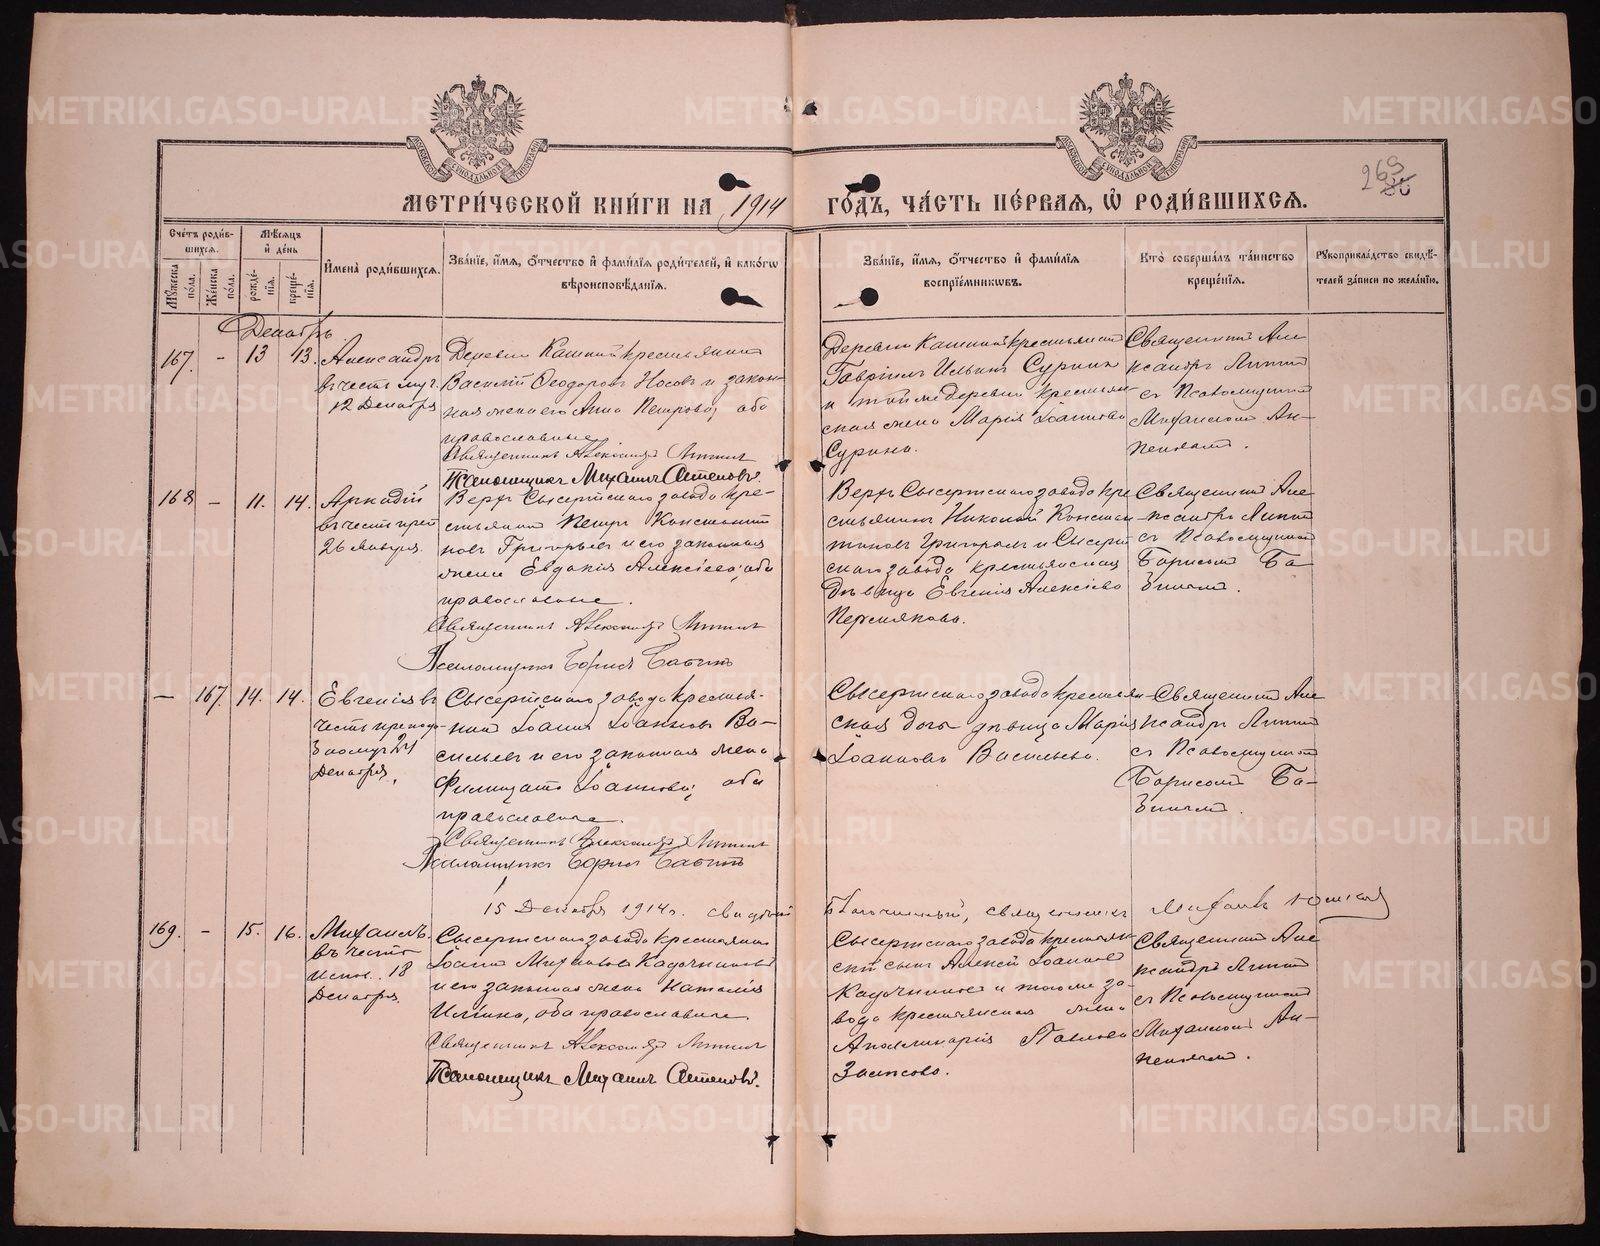 METRIKI.GASO-URAL.RU
269
МЕТРИ́ЧЕСКОЙ КНИ́ГИ НА 1914 ГО́ДЪ, ЧА́СТЬ ПЕ́РВАЯ, Ѡ҆ РОДИ́ВШИХСЯ.
Сче́тъ роди́в-
шихся.
Мѣ́сяцъ
и҆ де́нь
Му́жеска по́ла.
Же́нска по́ла.
рожде́-
нїя.
креще́-
нїя.
И҆мена̀ роди́вшихся.
Зва́нїе, и҆́мя, ѻ҆́тчество и҆ фами́лїя роди́телей, и҆ како́гѡ
вѣроисповѣ́данїя.
Зва́нїе, и҆́мя, ѻ҆́тчество и҆ фами́лїя
воспрїе́мникѡвъ.
Кто̀ соверша́лъ та́инство
креще́нїя.
Рꙋкоприкла́дство свидѣ́-
телей за́писи по жела́нїю.
Декабрь
167. - 13 13. Александръ
въ честь муч.
12 Декабря
Деревни Кашиной крестьянинъ
Василій Ѳеодоровъ Носовъ и закон-
ная жена его Анна Петрова, оба
православные
Священникъ Александръ
Псаломщикъ Михаилъ
Деревни Кашиной крестьянинъ
Гавріилъ Ильинъ Суринъ
и той же деревни крестьян-
ская жена Марія Іоаннова
Сурина.
Священникъ Але-
ксандръ
съ Псаломщикомъ
Михаиломъ
168 - 11. 14. Аркадій
въ честь преп.
26 Января.
Верхъ Сысертскаго завода кре-
стьянинъ Петръ Константи-
новъ Григорьевъ и его законная
жена Евдокія Алексіева, оба
православные.
Священникъ Александръ
Псаломщикъ Борисъ
Верхъ Сысертскаго завода кре-
стьянинъ Николай Констан-
тиновъ Григорьевъ и Сысерт-
скаго завода крестьянская
дѣвица Евгенія Алексіева
Пермякова.
Священникъ Але-
ксандръ
съ Псаломщикомъ
Борисомъ
- 167. 14. 14. Евгенія въ
честь преподо-
муч. 24
Декабря.
Сысертскаго завода крестья-
нинъ Іоаннъ Іоанновъ Ва-
сильевъ и его законная жена
Филицата Іоаннова, оба
православные.
Священникъ Александръ
Псаломщикъ Борисъ
Сысертскаго завода крестьян-
ская дочь дѣвица Марія
Іоаннова Васильева.
Священникъ Але-
ксандръ
съ Псаломщикомъ
Борисомъ
15 Декабря 1914 г.
Благочинный, священникъ
169. - 15. 16. Михаилъ
въ честь
18
Декабря
Сысертскаго завода крестьянинъ
Іоаннъ Михаиловъ Кадочниковъ
и его законная жена Наталія
Ильина, оба православные.
Священникъ Александръ
Псаломщикъ Михаилъ
Сысертскаго завода крестьян-
скій сынъ Алексѣй Іоанновъ
Кадочниковъ и того же за-
вода крестьянская жена
Аполлинарія Павлова
Священникъ Але-
ксандръ
съ Псаломщикомъ
Михаиломъ